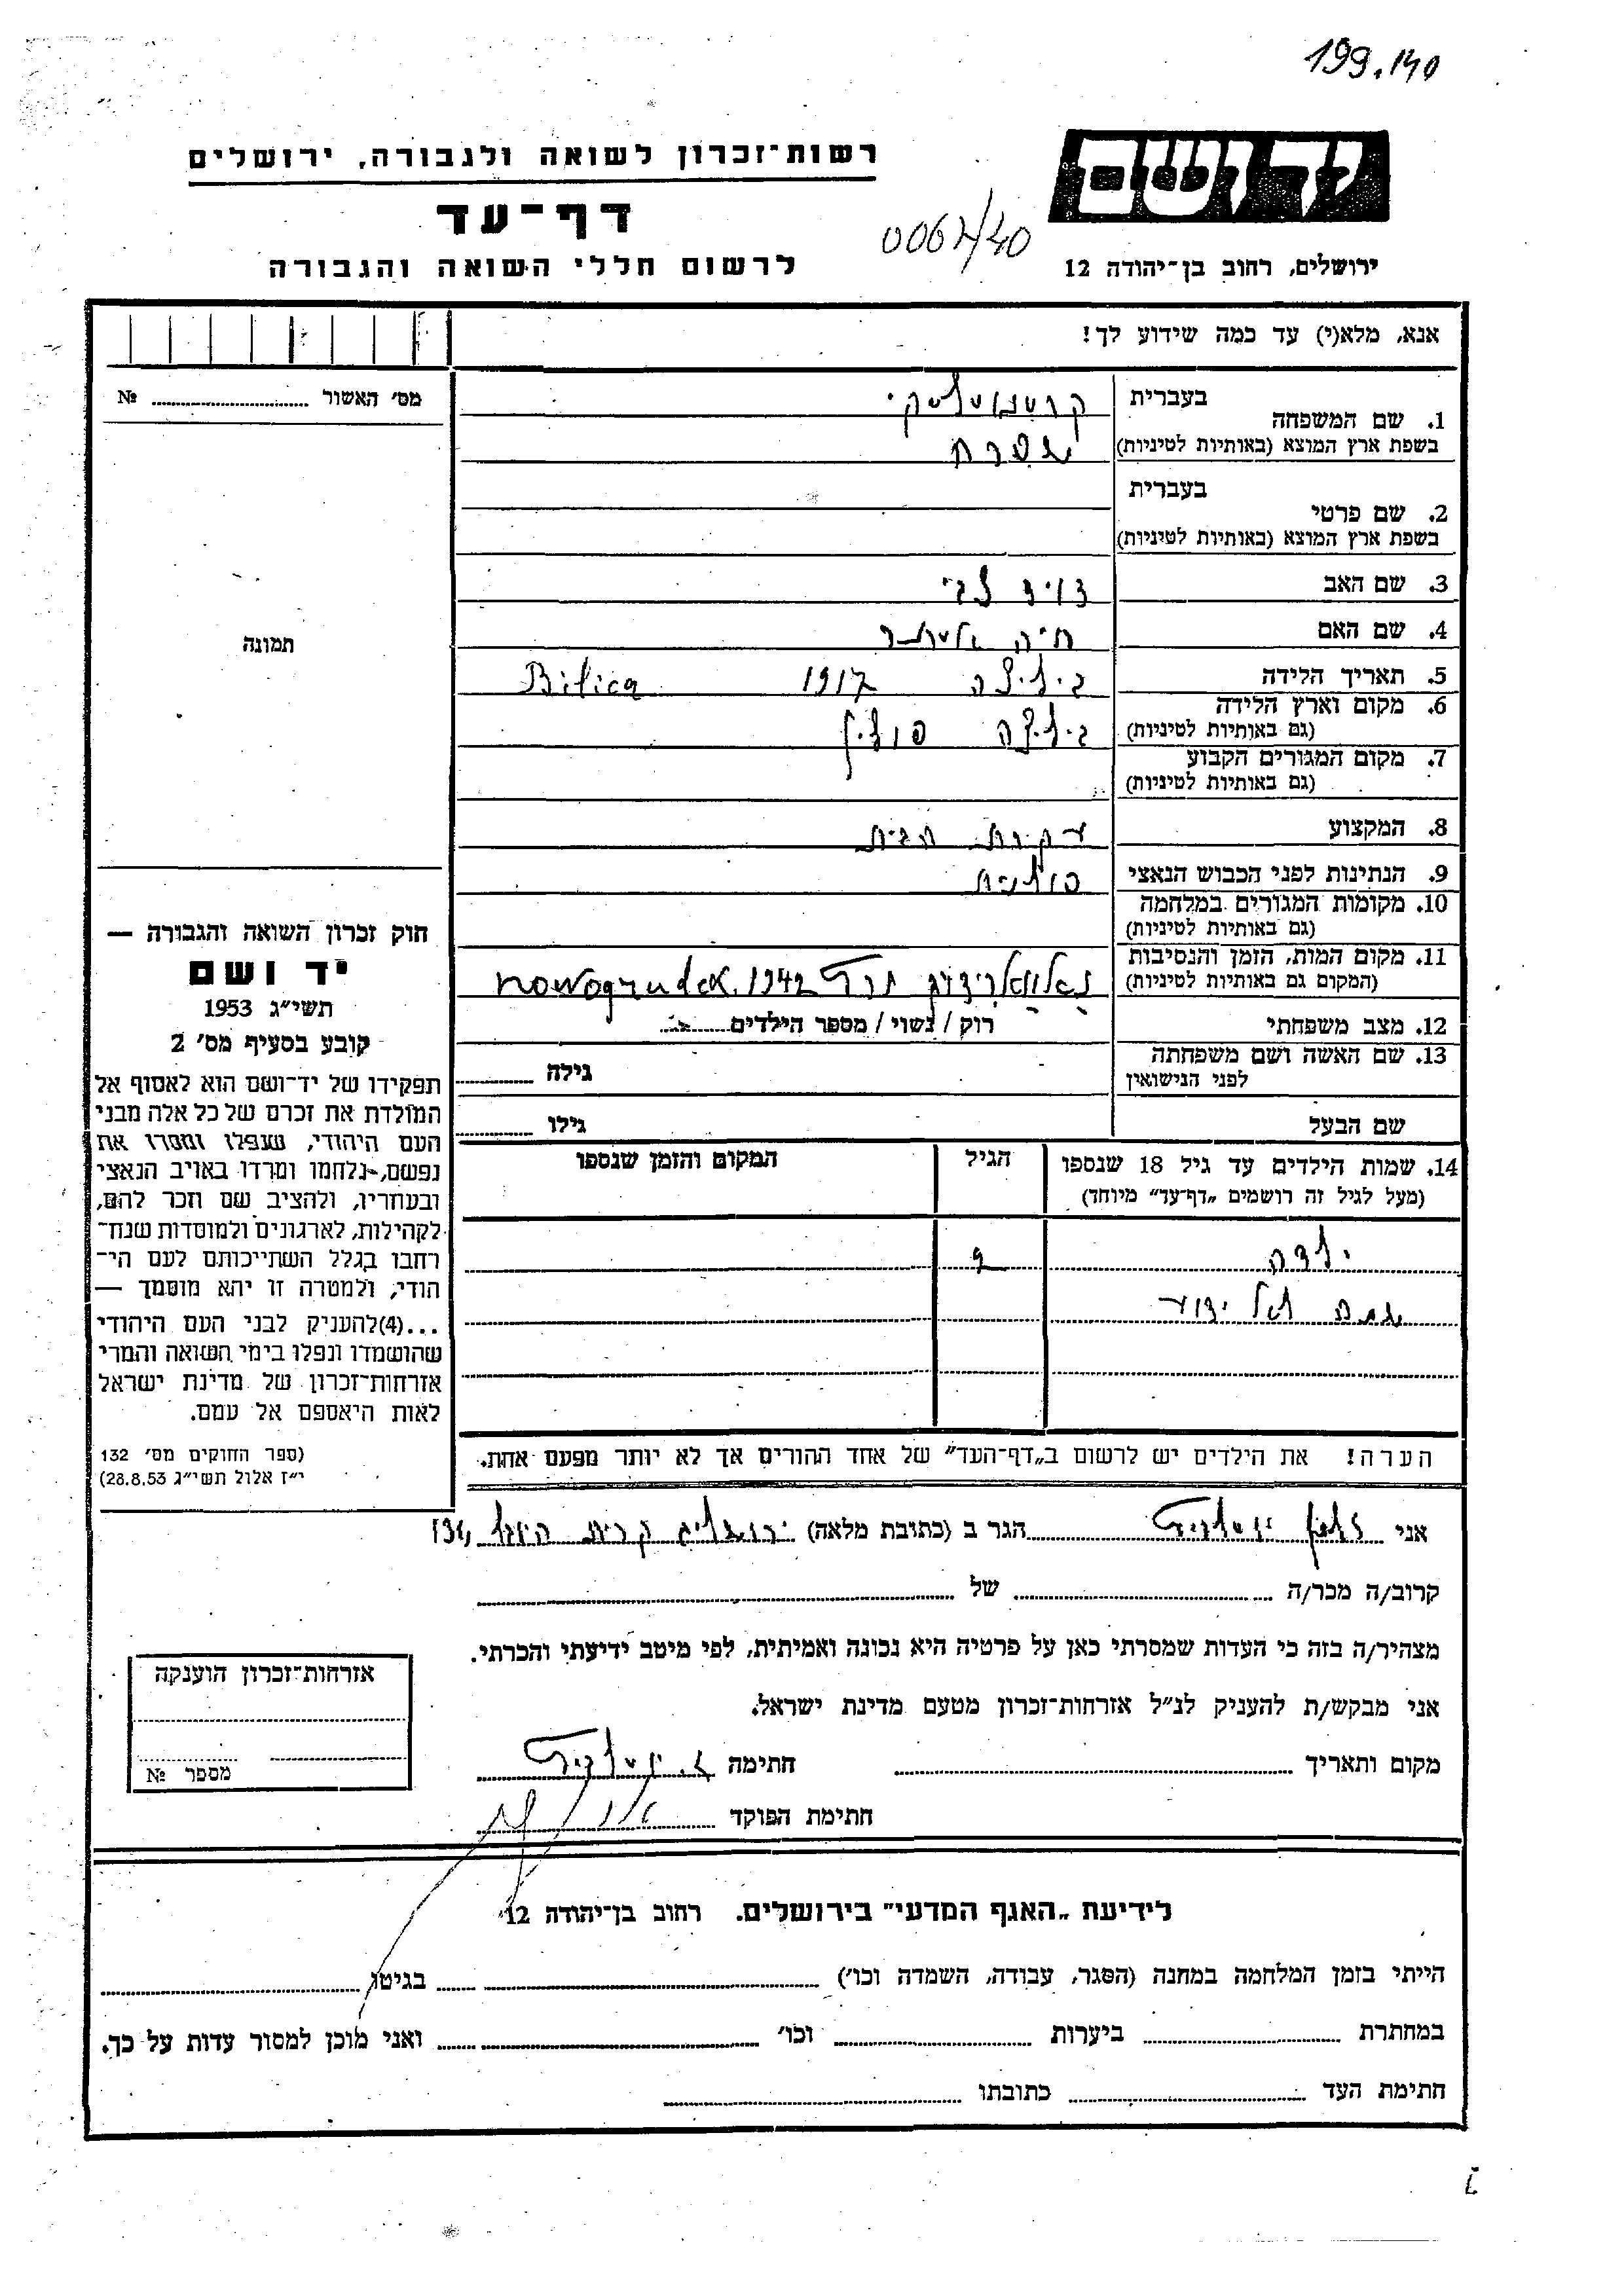 199.140
רשות־זכרון לשואה ולגבורה, ירושלים
ידושם
דף־עד
0062/40
לרשום חללי השואה והגבורה
ירושלים, רחוב בן־יהודה 12
אנא, מלא(י) עד כמה שידוע לך!
מס׳ האשור № 
בעברית
1. שם המשפחה
בשפת ארץ המוצא (באותיות לטיניות)
בעברית
2. שם פרטי
בשפת ארץ המוצא (באותיות לטיניות)
3. שם האב דויד לבי
4. שם האם חיה אסתר
5. תאריך הלידה ביליצה 1917 Bilica
6. מקום וארץ הלידה
(גם באותיות לטיניות) ביליצה פולין
7. מקום המגורים הקבוע
(גם באותיות לטיניות)
8. המקצוע עקרת הבית
9. הנתינות לפני הכבוש הנאצי פולנית
10. מקומות המגורים במלחמה
(גם באותיות לטיניות)
11. מקום המות, הזמן והנסיבות
(המקום גם באותיות לטיניות) 1942 nowogrudek.
12. מצב משפחתי רוק / נשוי / מספר הילדים
13. שם האשה ושם משפחתה גילה
לפני הנישואין
שם הבעל גילו
14. שמות הילדים עד גיל 18 שנספו הגיל המקום והזמן שנספו
(מעל לגיל זה רושמים „דף־עד״ מיוחד)
ילדה 2
שמה לא ידוע
הערה! את הילדים יש לרשום ב„דף־העד״ של אחד ההורים אך לא יותר מפעם אחת.
תמונה
חוק זכרון השואה והגבורה —
יד ושם
תשי״ג 1953
קובע בסעיף מס׳ 2
תפקידו של יד־ושם הוא לאסוף אל
המולדת את זכרם של כל אלה מבני
העם היהודי, שנפלו ומסרו את
נפשם, נלחמו ומרדו באויב הנאצי
ובעוזריו, ולהציב שם וזכר להם,
לקהילות, לארגונים ולמוסדות שנח־
רחבו בגלל השתייכותם לעם הי־
הודי, ולמטרה זו יהא מוסמך —
...(4)להעניק לבני העם היהודי
שהושמדו ונפלו בימי השואה והמרי
אזרחות־זכרון של מדינת ישראל
לאות היאספם אל עמם.
(ספר החוקים מס׳ 132
י״ז אלול תשי״ג 28.8.53)
אני הגר ב (כתובת מלאה) ירושלים קרית היובל
קרוב/ה מכר/ה של
מצהיר/ה בזה כי העדות שמסרתי כאן על פרטיה היא נכונה ואמיתית, לפי מיטב ידיעתי והכרתי.
אני מבקש/ת להעניק לנ״ל אזרחות־זכרון מטעם מדינת ישראל.
מקום ותאריך חתימה
חתימת הפוקד
אזרחות־זכרון הוענקה
מספר №
לידיעת „האגף המדעי״ בירושלים. רחוב בן־יהודה 12
הייתי בזמן המלחמה במחנה (הסגר, עבודה, השמדה וכו׳) בגיטו
במחתרת ביערות וכו׳ ואני מוכן למסור עדות על כך.
חתימת העד כתובתו